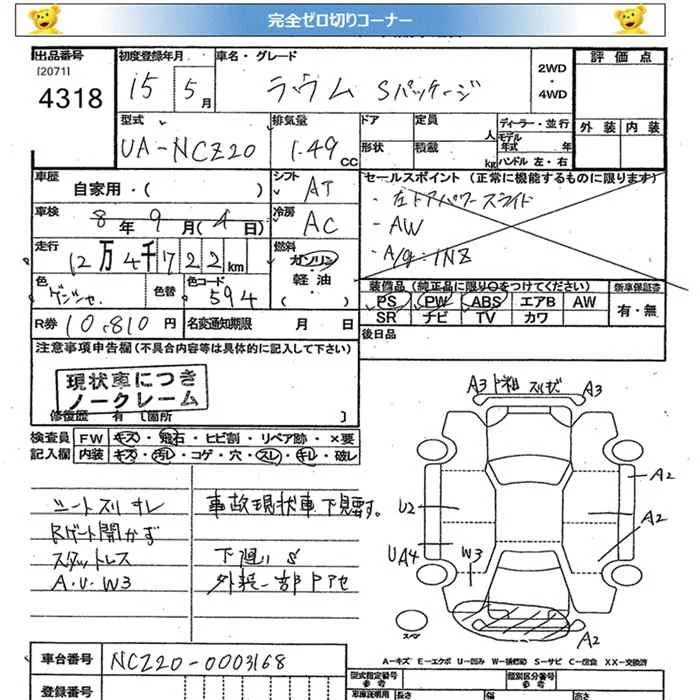 完全ゼロ切りコーナー
出品番号 初度登録年月 車名・グレード 評価点
[2071]
4318 15 5月 ラウム Sパッケージ 2WD・4WD
型式 排気量 ドア 定員 人 ディーラー・並行 外装 内装
UA-NCZ20 1.49 CC 形状 積載 kg モデル年式 年
ハンドル 左・右
車歴 自家用・( ) シフト AT セールスポイント (正常に機能するものに限ります)
・左ドアパワースライド
車検 8年 9月 (4日) 冷房 AC ・AW
・A/g:1NZ
走行 12万4千722km 燃料 ガソリン・軽油・( )
色 色替 色コード 594
装備品 (純正品に限り○をつけてください) 新車保証書
PS PW ABS エアB AW 有・無
SR ナビ TV カワ
R券 10,810円 名変通知期限 月 日 後日品
注意事項申告欄 (不具合内容等は具体的に記入して下さい)
現状車につき
ノークレーム
修復歴 有 [箇所 ]
検査員 FW キズ・飛石・ヒビ割・リペア跡・×要
記入欄 内装 キズ・汚レ・コゲ・穴・スレ・キレ・破レ
シートスリ キレ 事故現状車 下見要す。
Rゲート開かず
スタットレス 下廻り S
A.U.W3 外装一部
A3 A3
A2
U2 A2
UA4 W3
A2
スペア
A-キズ E-エクボ U-凹み W-補修跡 S-サビ C-腐食 XX-交換済
車台番号 NCZ20-0003168
登録番号
型式指定番号 類別区分番号
参考 参考
車庫証明用 長さ 幅 高さ